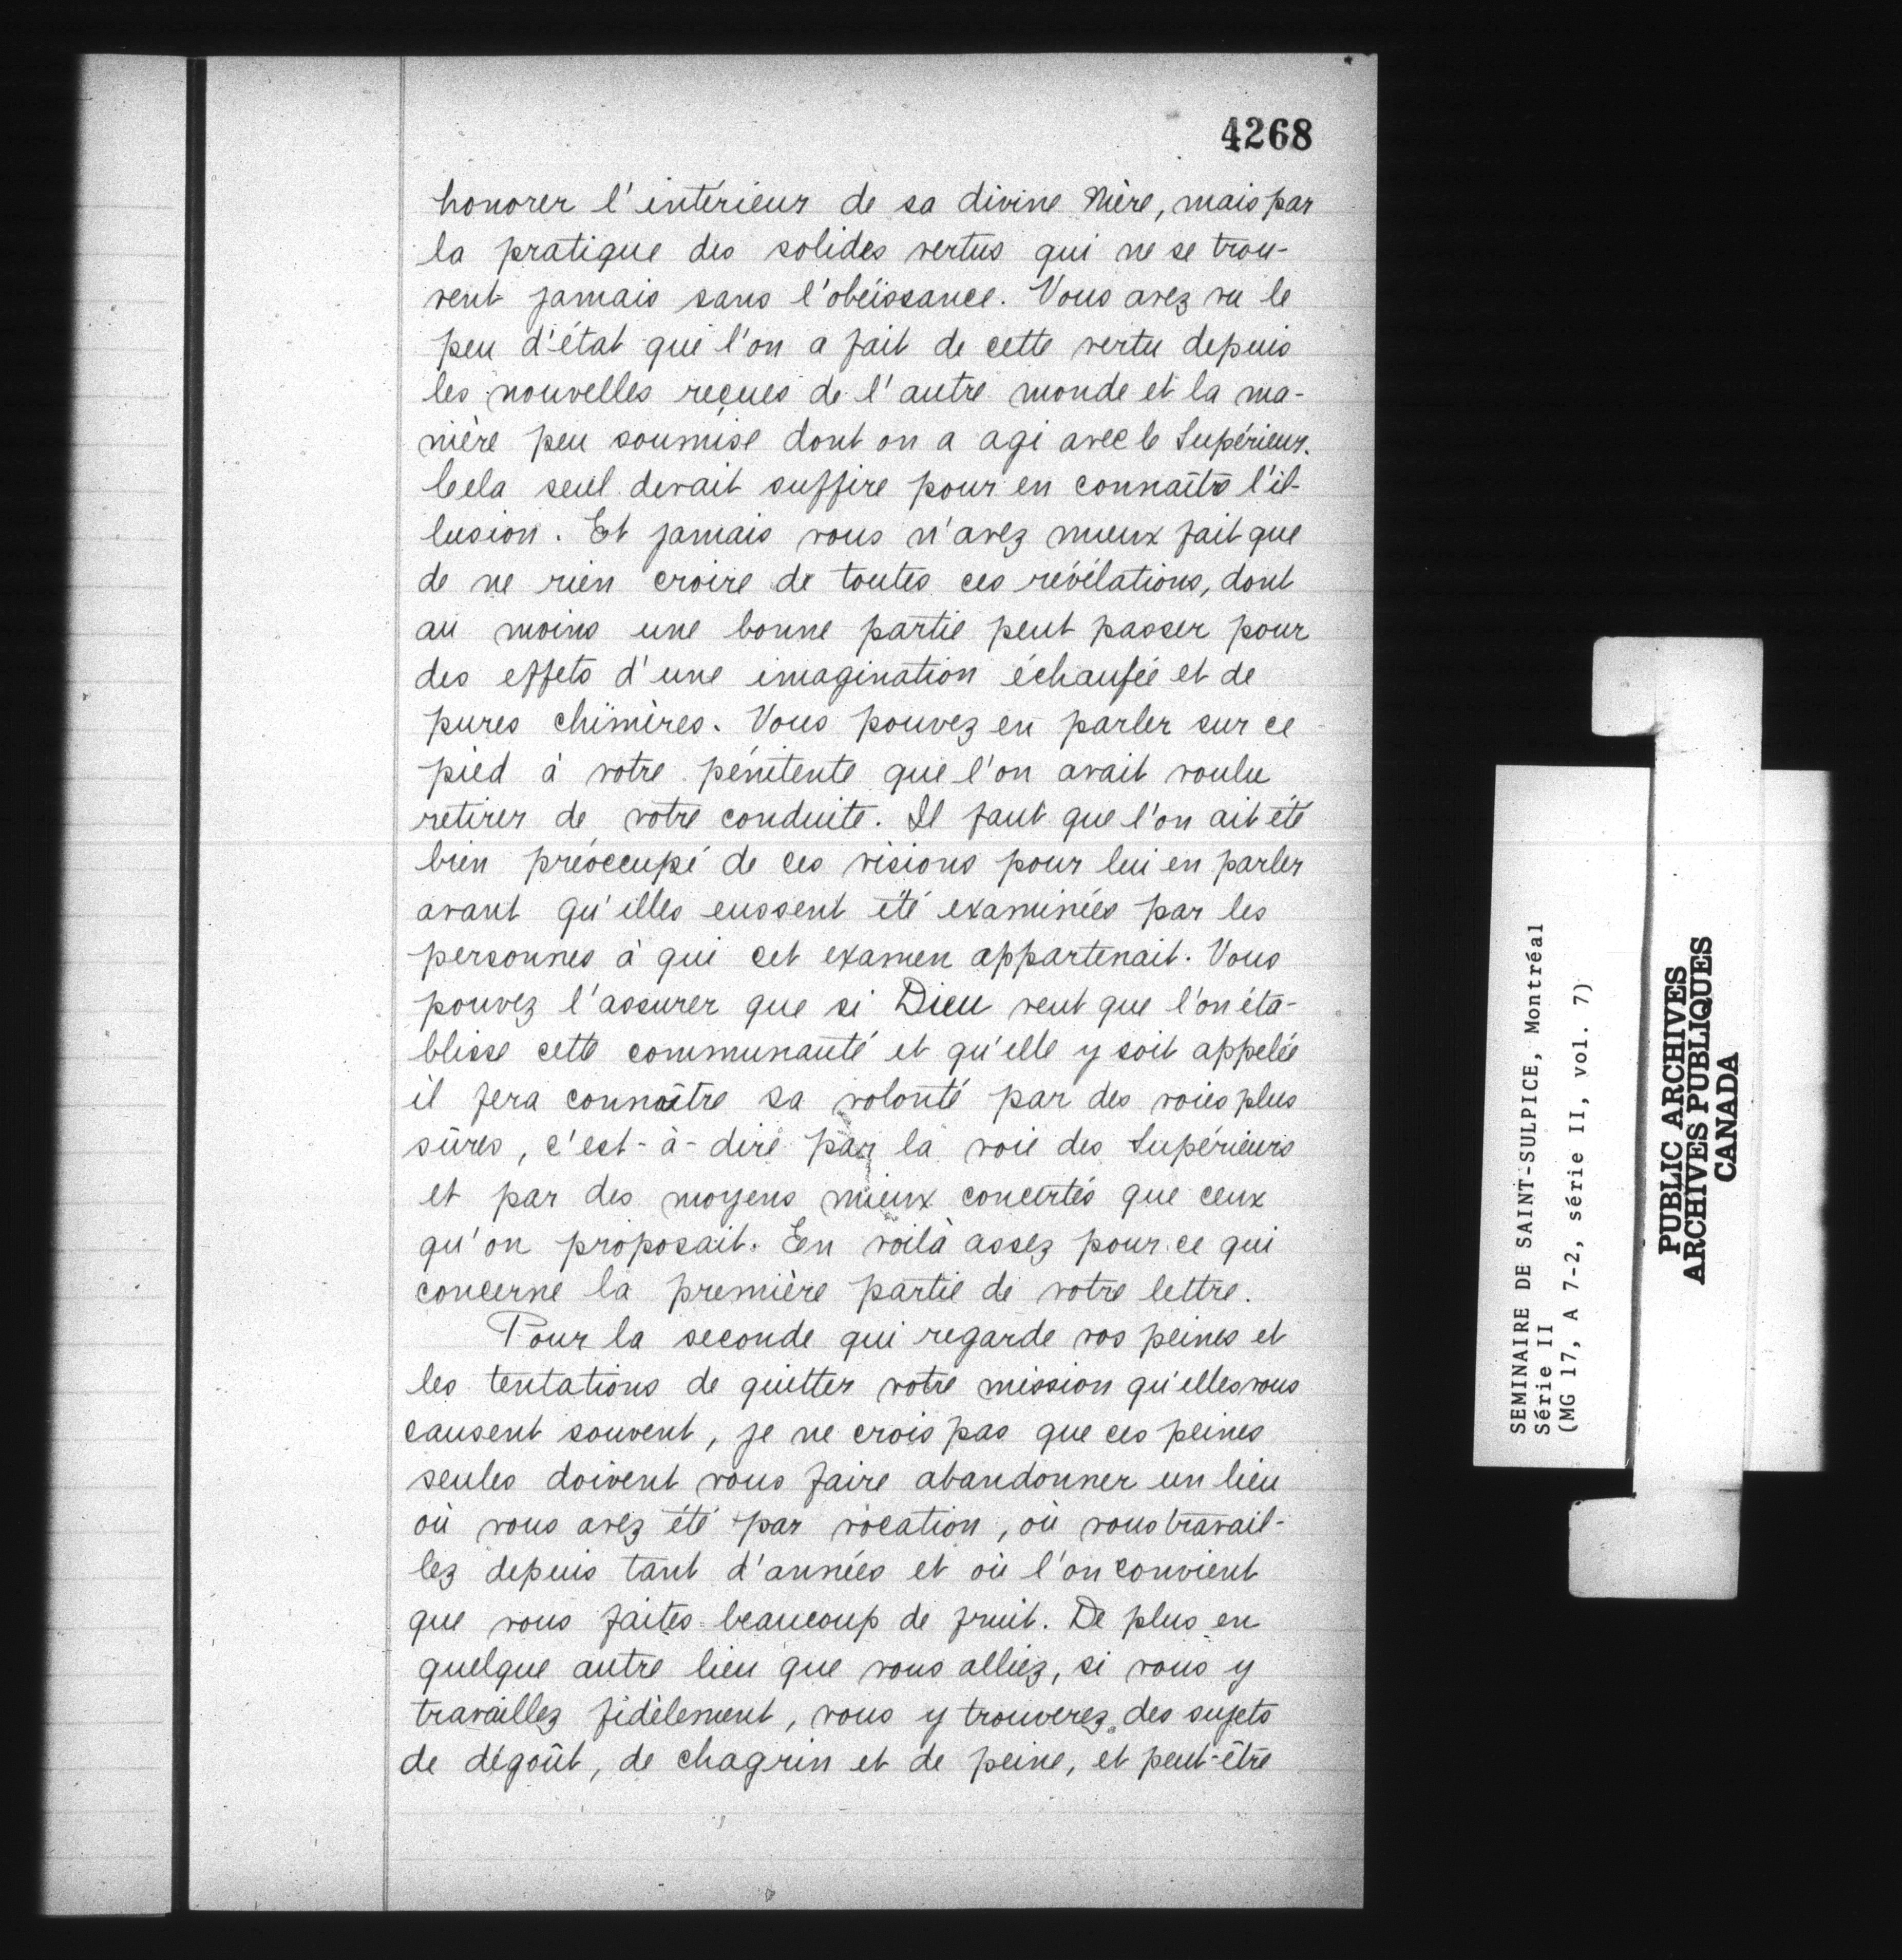 4268
honorer l'intérieur de sa divine Mère, mais par
la pratique des solides vertus qui ne se trou-
vent jamais sans l'obéissance. Vous avez vu le
peu d'état que l'on a fait de cette vertu depuis
les nouvelles reçues de l'autre monde et la ma-
nière peu soumise dont on a agi avec le Supérieur.
Cela seul devait suffire pour en connaître l'il-
lusion. Et jamais vous n'avez mieux fait que
de ne rien croire de toutes ces révélations, dont
au moins une bonne partie peut passer pour
des effets d'une imagination échaufée et de
pures chimères. Vous pouvez en parler sur ce
pied à votre pénitente que l'on avait voulu
retirer de votre conduite. Il faut que l'on ait été
bien préoccupé de ces visions pour lui en parler
avant qu'elles eussent été examinées par les
personnes à qui cet examen appartenait. Vous
pouvez l'assurer que si Dieu veut que l'on éta-
blisse cette communauté et qu'elle y soit appelée
il fera connaître sa volonté par des voies plus
sûres, c'est-à-dire par la voie des Supérieurs
et par des moyens mieux concertés que ceux
qu'on proposait. En voilà assez pour ce qui
concerne la première partie de votre lettre.
Pour la seconde qui regarde vos peines et
les tentations de quitter votre mission qu'elles vous
causent souvent, je ne crois pas que ces peines
seules doivent vous faire abandonner un lieu
où vous avez été par vocation, où vous travail-
lez depuis tant d'années et où l'on convient
que vous faites beaucoup de fruit. De plus en
quelque autre lieu que vous alliez, si vous y
travaillez fidèlement, vous y trouverez des sujets
de dégoût, de chagrin et de peine, et peut-être
SEMINAIRE DE SAINT-SULPICE, Montréal
Série II
(MG 17, A 7-2, série II, vol. 7)
PUBLIC ARCHIVES
ARCHIVES PUBLIQUES
CANADA